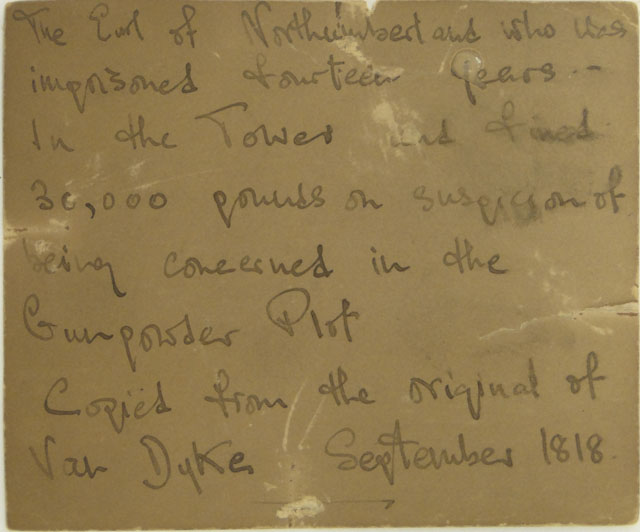 The Earl of Northumberland who was
imprisoned fourteen years -
In the Tower and fined
30,000 pounds on suspicion of
being concerned in the
Gunpowder Plot
Copied from the original of
Van Dyke. September 1818.